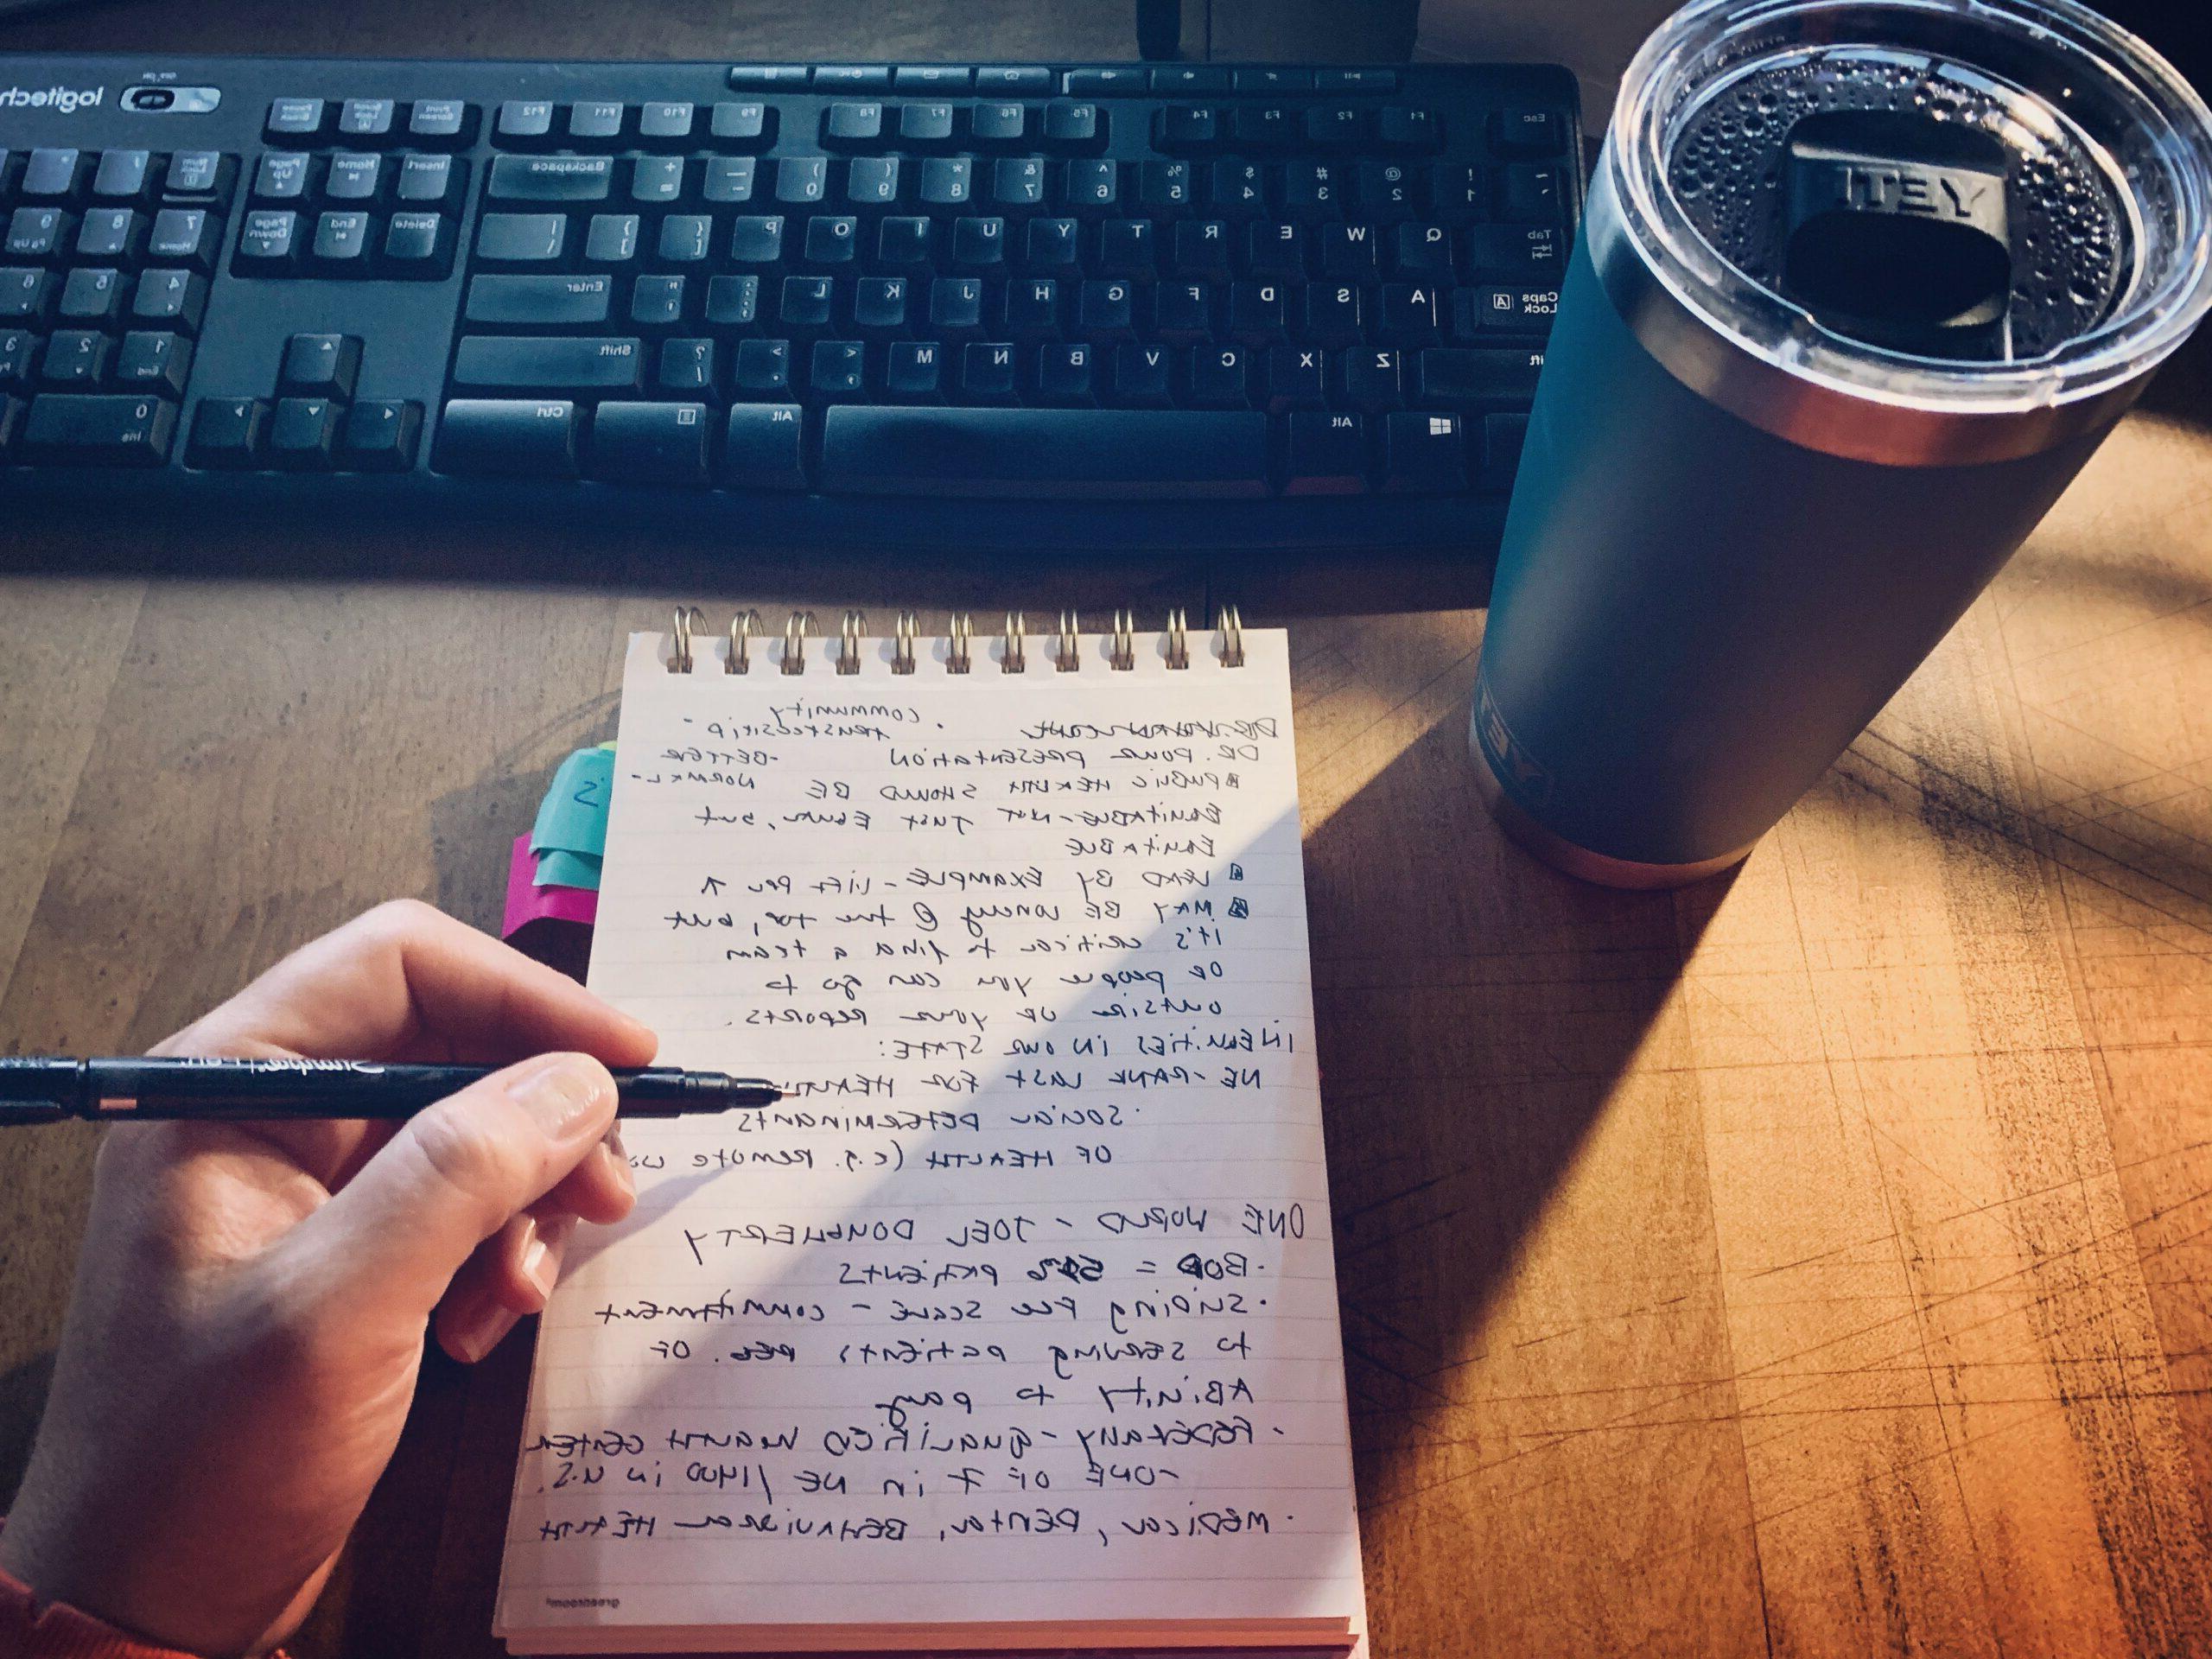 logitech
OFF/ON
Esc F1 F2 F3 F4 F5 F6 F7 F8 F9 F10 F11 F12 Print Screen Scroll Lock Pause Break
~ ` ! 1 @ 2 # 3 $ 4 % 5 ^ 6 & 7 * 8 ( 9 ) 0 — - + = Backspace Insert Home Page Up Num Lock / *
Tab Q W E R T Y U I O P { [ } ] | \ Delete End Page Down 7 Home 8 9 Pg Up
Caps Lock A S D F G H J K L : ; " ' Enter 4 5 6
Z X C V B N M < , > . ? / Shift 1 End 2 3
Alt Alt Ctrl 0 Ins
YETI
YETI
DR. POUR PRESENTATION
· COMMUNITY
TRUSTEESHIP -
-BETTER
NORMAL-
PUBLIC HEALTH SHOULD BE
EQUITABLE-NOT JUST EQUAL, but
EQUITABLE
LEAD BY EXAMPLE - LIFT PPL ↑
MAY BE lonely @ the top, but
it's critical to find a team
OF people you can go to
outside OF your REPORTS.
INEQUITIES IN OUR STATE:
NE-RANK LAST FOR
· SOCIAL DETERMINANTS
OF HEALTH (e.g. REMOTE
ONE WORLD - JOEL DOUGHERTY
· BOD = 51% PATIENTS
· SLIDING FEE SCALE - COMMITMENT
to SERVING PATIENTS REG. OF
ABILITY to pay
· FEDERALLY-QUALIFIED HEALTH CENTER
-ONE OF 7 in NE /1400 in U.S.
· MEDICAL, DENTAL, BEHAVIORAL HEALTH
greenroom
2'S
Sharpie. Pen